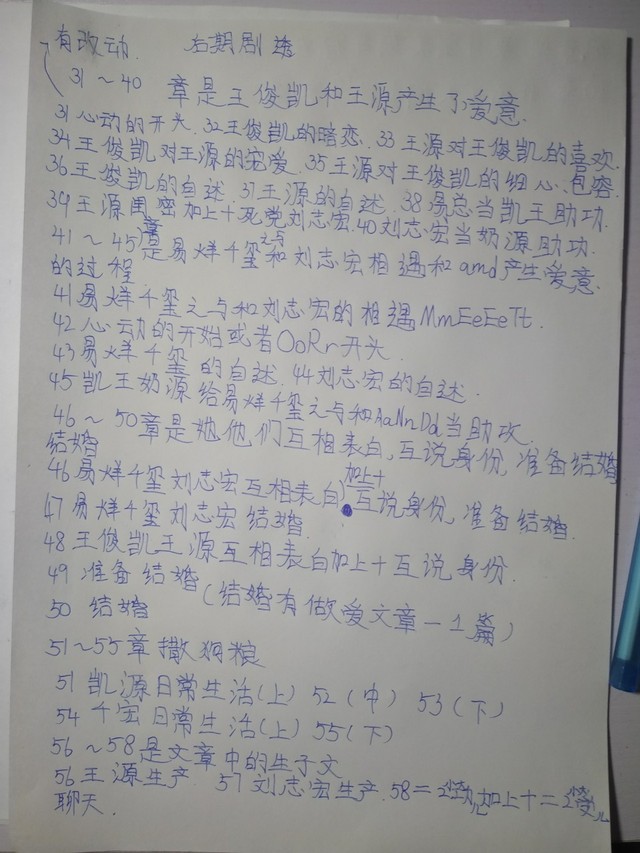 有改动. 后期剧透
31～40 章是王俊凯和王源产生了爱意.
31心动的开头. 32王俊凯的暗恋. 33王源对王俊凯的喜欢.
34王俊凯对王源的宠爱. 35王源对王俊凯的细心、包容.
36王俊凯的自述. 37王源的自述. 38易总当凯王助功.
39王源闺密加上十死党刘志宏. 40刘志宏当奶源助功.
41～45章是易烊千玺之与和刘志宏相遇和and产生爱意.
的过程.
41易烊千玺之与和刘志宏的相遇MmEeEeTt.
42心动的开始或者OoRr开头.
43易烊千玺 的自述. 44刘志宏的自述.
45凯王奶源给易烊千玺之与和AaNnDd当助攻.
46～50章是她他们互相表白, 互说身份, 准备结婚
结婚
46易烊千玺刘志宏互相表白加上十互说身份, 准备结婚.
47易烊千玺刘志宏结婚.
48王俊凯王源互相表白加上十互说身份.
49 准备结婚
50 结婚 (结婚有做爱文章一1篇)
51～55章撒狗粮
51 凯源日常生活(上) 52(中) 53(下)
54 千宏日常生活(上) 55(下)
56～58是文章中的生子文
56王源生产. 57刘志宏生产. 58=2攻儿加上十二2受儿
聊天.